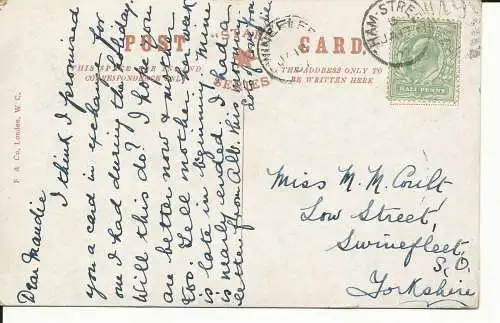 POST CARD
"STAR
SERIES
THIS SPACE
CORRESPONDENCE
THE ADDRESS ONLY TO
BE WRITTEN HERE
F. & Co., London, W. C.
SWINEFLEET
HAM. STREET
HALF PENNY
Dear Maudie
I think I promised
you a card in exchange for
one I had during the holiday.
Will this do? I hope you
are better now & mother
too. Tell mother her week
is late in beginning & mine
is nearly ended. I had a
letter from Alb. this morning.
Miss M. M. Coult
Low Street,
Swinefleet,
S. O.
Yorkshire